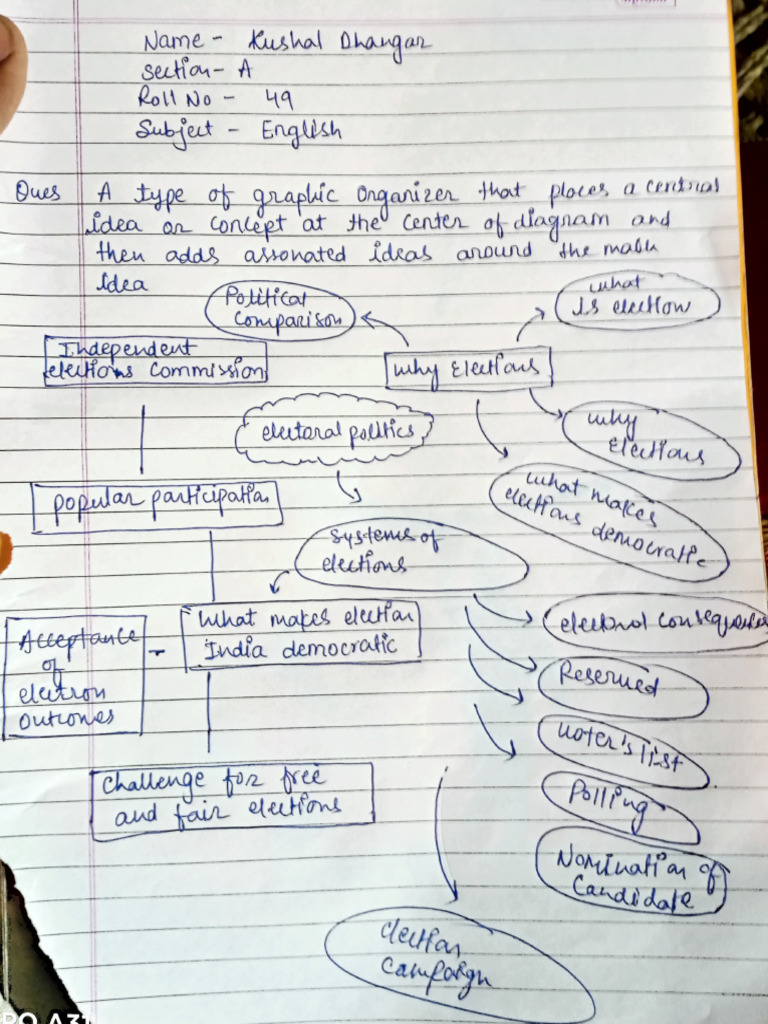 Name - Kushal Dhangar
Section - A
Roll No - 49
Subject - English
Ques A type of graphic organizer that places a central
idea or concept at the center of diagram and
then adds assonated ideas around the
idea
Political
comparison
what
is election
Independent
elections Commission
Why Elections
electoral politics
Why
Elections
popular participation
what makes
elections democratic
Systems of
elections
What makes election
India democratic
Acceptance
of
election
outcomes
electoral
Reserved
voter's list
Challenge for free
and fair elections
Polling
Nomination of
Candidate
election
campaign
RO A31